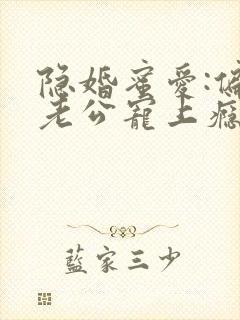 隐婚蜜爱:偏
老公宠上瘾
藍家三少